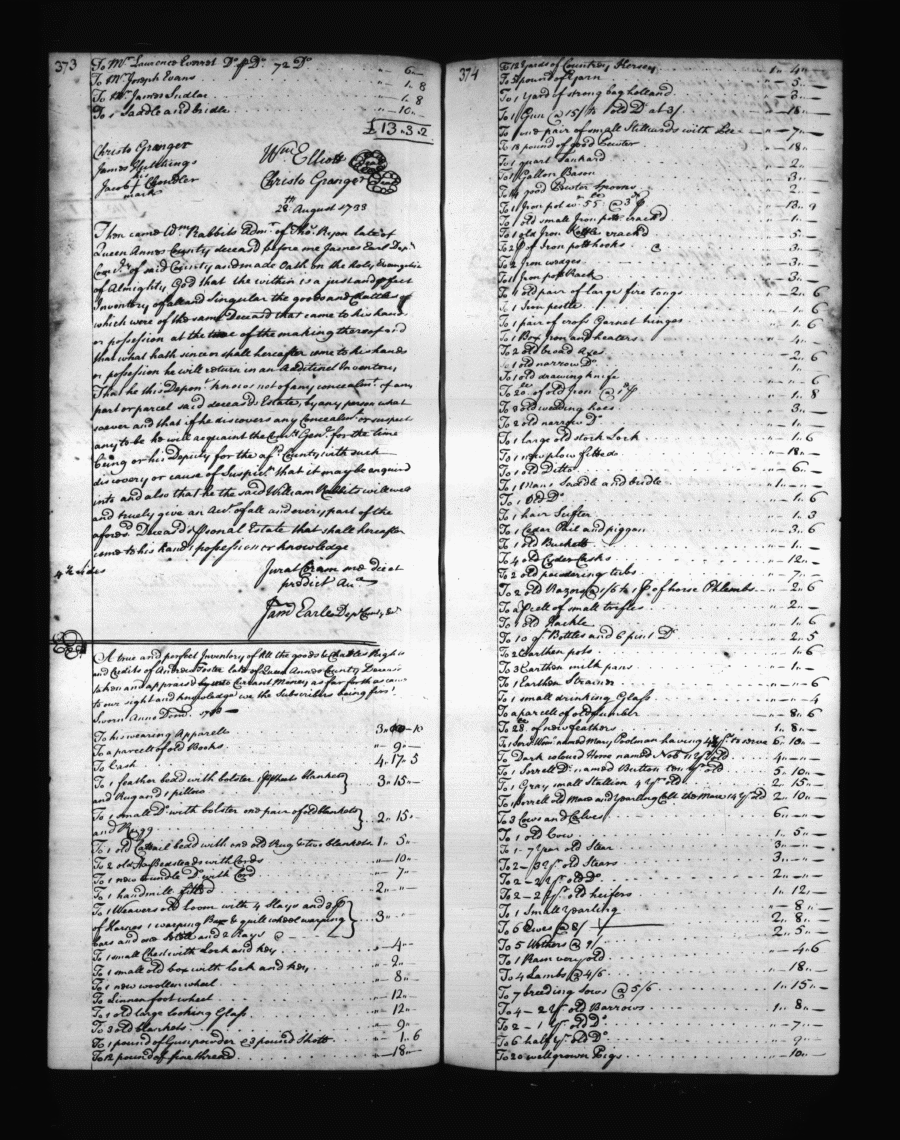 373
To Mr Laurence Everet Do p Do 72 Do " 6 "
To Mr Joseph Evans " 1. 8
To Mr James Sudler 1. 8
To 1 Saddle and bridle " 10 "
£ 13 " 3 " 2
Christo Granger
James Hutchings
his
Jacob Chandler
mark
Wm Elliott Seal
Christo Granger Seal
28th August 1733
Then came Wm Rabbits Admr of Thos Ryon late of
Queen Annes County deceasd before me James Earl Depty
Comry of said County and made Oath on the Holy Evangelis
of Almighty God that the within is a just and pfect
Inventory of all and singular the goods and Chattles of
which were of the same Deceasd that came to his hand
or possession at the time of the making thereof and
that what hath since or shall hereafter come to his hands
or possession he will return in an Additinel Inventory
That he this Depont knows not of any concealmt of any
part or parcel said deceasds Estate, by any person what
soever and that if he discovers any Concealmt or suspect
any to be he will acquaint the Comry Genl for the time
being or his Deputy for the afd County with such
discovery or cause of Suspicn that it may be enquird
into and also that he the said William Rabbits will well
and truely give an Acct of all and every part of the
aforesd Deceasds Psonal Estate that shall hereafter
come to his hands possession or knowledge
4 sides
Jurat Coram me die et
predict Ano
Jams Earle Dep Comry
A true and perfect Inventory of All the goods Chattles Rights
and Credits of Andrew Foster late of Queen Annes County Deceasd
taken and appraised by us to Currant Money as far forth as came
to our sight and knowledge we the Subscribers being first
Sworn Anno Dom. 1733
To his wearing Apparell 3 " 10
To a parcell of old Books " 9 "
To Cash 4. 17. 5
To 1 feather bedd with bolster 1 pr sheets blanket
and Rug and 1 pillow 3 " 15 "
To 1 Small Do with bolster one pair of old blankets
and Rugg 2 " 15 "
To 1 old Cattail bedd with one old Rug & two blankets 1 " 5 "
To 2 old Bedsteads with Cords " 10 "
To 1 new trundle Do with Cord " 7 "
To 1 handmill fitted 2 " " "
To 1 Weavers old Loom with 4 Slays and 3 pr
of Harnes 1 warping Box & quill wheel warping
bars and 2 Rays 3 " "
To 1 small Chest with Lock and key " 4 "
To 1 small old box with Lock and key " 2 "
To 1 new woollen wheel " 8 "
To Linnen foot wheel " 12 "
To 1 old large looking Glass " 12 "
To 3 old blankets " 9 "
To 1 pound of Gunpowder & 3 pound Shott " 1 " 6
To 12 pound of fine thread " 18 "
374
To 12 Yards of Country Kersey 1 " 4 "
To 5 pound of Yarn " 5 "
To 1 Yard of strong bag holland " 3 "
To 1 Gun @ 15/ & 1 old Do at 3/ " 18 "
To one pair of small Stilliards with Pee " 7 "
To 18 pound of good Pewter " 18 "
To 1 quart Tankard " 2 "
To 1 Gallon Bason " 3 "
To good Pewter Spoons " 2 "
To 1 Iron pot wt 55 @ 3d p " 13 " 9
To 1 old small Iron pott crackd " 1 "
To 1 old Iron Kettle crackd " 5 "
To 2 pr of Iron potthooks " 3 "
To 2 Iron wedges " 3 "
To 1 Iron pott Rack " 3 "
To 1 old pair of large fire tongs " 2 " 6
To 1 Iron pestle " 1 " 6
To 1 pair of cross Garnet hinges " 1 " 6
To 1 Box Iron and heaters " 4 "
To 2 old broad Axes " 2 " 6
1 old narrow Do 1 "
To 1 old drawing knife " " 6
To 20 of old Iron @ 1d p " 1. 8
To 3 old weeding hoes " 3 "
To 2 old narrow Do " 1 "
To 1 large old stock Lock " 1 " 6
To 1 new plow fitted " 18 "
To 1 old Ditto " 6 "
To 1 Mans Saddle and bridle 1 " "
To 1 Old Do " 1. 6
To 1 hair Sifter " 1. 3
To 1 Cedar Phil and piggon " 3. 6
To 1 old Buckett " 1. "
To 4 old Cyder Casks " 12 "
To 2 old powdering tubs " 7 "
To 2 old Razors @ 1/6 & 1 pr of horse Phlembs " 2. 6
To a Pcell of small trifles " 2 "
To 1 old Hackle " 1. 6
To 10 qt Bottles and 6 pint Do " 2. 5
To 2 Earthen pots " 1. 6
To 3 Earthen milk pans " 1. "
To 1 Earthen Strainer " " 6
To 1 small drinking Glass " " 4
To a parcell of old lumber " 8 " 6
To 28 of new feathers 1. 8 "
To 1 Servt Womn named Mary Poolman having 4½ yrs to serve 6 " 10 "
To Dark colored Horse named Nob 11 yrs old 4 " " "
To 1 Sorrell Do named Button ten yrs old 5. 10 "
To 1 Gray small Stallion 4 yrs old 2. 15 "
To 1 Sorrell old Mare and yearling Colt the Mare 14 yrs old 2. 10 "
To 3 Cows and Calves 6 " " "
To 1 old Cow 1 " 5 "
To 1 7 year old Stear 3 " "
To 2 - 3 yrs old Stears 3 " "
To 2 - 2 yrs old Do 2 " "
To 2 - 2 yrs old heifers 1 " 12 "
To 1 Small Yearling " 8 "
To 6 Ewes @ 8/ 2. 8 "
To 5 Wethers @ 9/ 2. 5 "
To 1 Ram very old " 4 " 6
To 4 Lambs @ 4/6 " 18 "
To 7 breeding Sows @ 5/6 1 " 15 "
To 4 - 2 yrs old Barrows 1. 8 "
To 2 - 1 yrs old Do " 7 "
To 6 half yr old Do " 9 "
To 20 wellgrown Pigs " 10 "